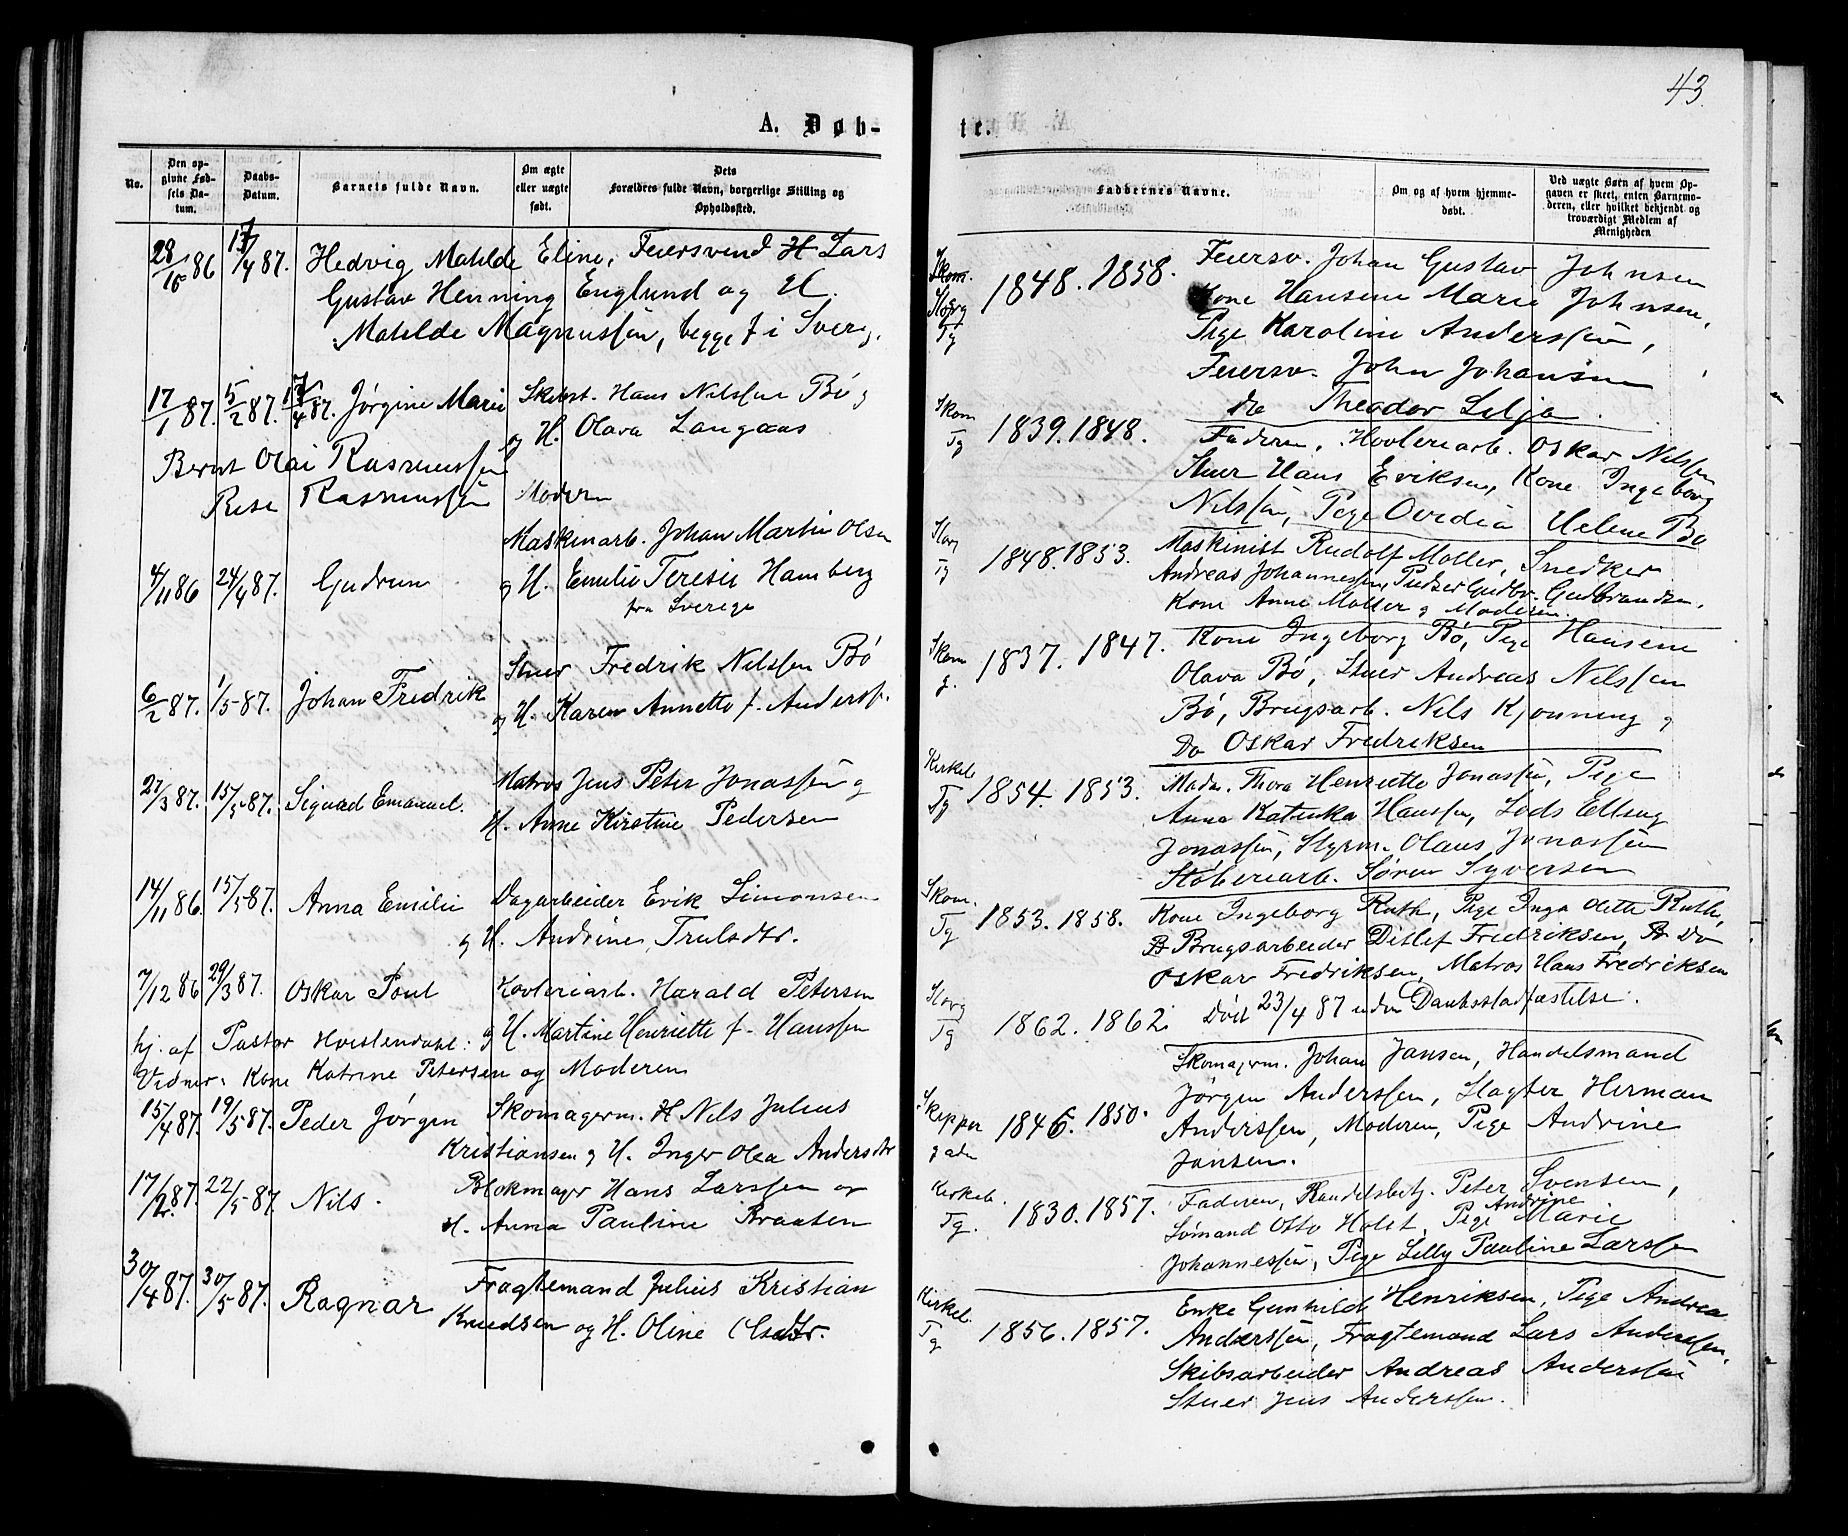 43.
A. Døb-
te.
No.
Den opgivne Fødsels Datum.
Daabs-Datum.
Barnets fulde Navn.
Om ægte eller uægte født.
Dets Forældres fulde Navn, borgerlige Stilling og Opholdssted.
Faddernes Navne.
Om og af hvem hjemmedøbt.
Ved uægte Børn af hvem Opgaven er skeet, enten Barnemoderen, eller hvilket bekjendt og troværdigt Medlem af Menigheden
28/10 86 17/4 87. Hedvig Matilde Eline, Feiersvend H Lars
Gustav Henning Englund og H.
Matilde Magnussen, begge f i Sverg.
17/1 87. 5/2 87. 17/4 87. Jørgine Marie Skibst. Hans Nilssen Bø
og H. Olava Langaas
Bernt Olai Rasmussen
Rise Rasmussen Moderen
Maskinarb. Johan Martin Olsen
4/11 86 24/4 87. Gudrun og H. Emilie Teresie Hamberg
fra Sverige
Stuer Fredrik Nilssen Bø
6/2 87. 1/5 87. Johan Fredrik og H. Karen Annette f. Anderss.
27/3 87. 15/5 87. Sigurd Emanuel. Matros Jens Peter Jonassen og
H. Anne Kirstine Pedersen
14/11 86. 15/5 87. Anna Emilie Dagarbeider Erik Simonsen
og H. Andrine Trulsdtr.
7/12 86 29/3 87. Oskar Poul Høvleriarb. Harald Petersen
og H. Martine Henriette f. Hanssen
hj. af Pastor Hvistendahl:
Vidner: Kone Katrine Petersen og Moderen
15/4 87. 19/5 87. Peder Jørgen Skomagerm. H Nils Julius
Kristiansen og H. Inger Olea Andersdtr
17/2 87. 22/5 87. Nils. Blokmager Hans Larssen og
H. Anna Pauline Braaten
30/4 87. 30/5 87. Ragnar Fragtemand Julius Kristian
Knudsen og H. Oline Olsdtr.
Skom.
Storg
Tg
1848. 1858. Feiersv. Johan Gustav Johnsen
Kone Hansene Marie Johnsen,
Pige Karoline Anderssen,
Feiersv. John Johansen
do Theodor Lilja.
Skom
Tg
1839. 1848. Faderen, Hovleriarb. Oskar Nilssen
Stuer Hans Eriksen, Kone Ingeborg
Nilssen, Pige Ovedia Helene Bø
Storg
Tg
1848. 1853. Maskinist Rudolf Moller, Snedker
Andreas Johannessen, Pudser Gudbr. Gudbrandsen.
Kone Anne Moller og Moderen.
Skom
g.
1837. 1847. Kone Ingeborg Bø, Pige Hansine
Olava Bø, Stuer Andreas Nilssen
Bø, Brugsarb. Nils Kjonning og
Do Oskar Fredriksen
Kirkeb
Tg
1854. 1853. Madm. Thora Henriette Jonassen, Pige
Anna Katinka Hanssen, Lods Elling
Jonassen, Styrm. Olaus Jonassen
Støberiarb. Søren Syversen
Skom.
Tg
1853. 1858. Kone Ingeborg Ruth, Pige Inga dette Ruth,
Brugsarbeider Ditlef Fredriksen, Do
Oskar Fredriksen, Matros Hans Fredriksen
Storg
Tg
1862. 1862. Død 23/4 87 uden Daabsstadfæstelse.
Skomagerm. Johan Jansen, Handelsmand
Jørgen Anderssen, Slagter Herman
Anderssen, Moderen, Pige Andrine
Jansen.
Skipper
gaden
1846. 1850.
Kirkeb
Tg.
1830. 1857. Faderen, Handelsbetj. Peter Svensen,
Sømand Otto Holst, Pige Andrine Marie
Johannessen, Pige Lilly Pauline Larssen
Kirkeb.
Tg
1856. 1857. Enke Gunhild Henriksen, Pige Andrea
Anderssen, Fragtemand Lars Anderssen,
Skibsarbeider Andreas Anderssen
Stuer Jens Anderssen.